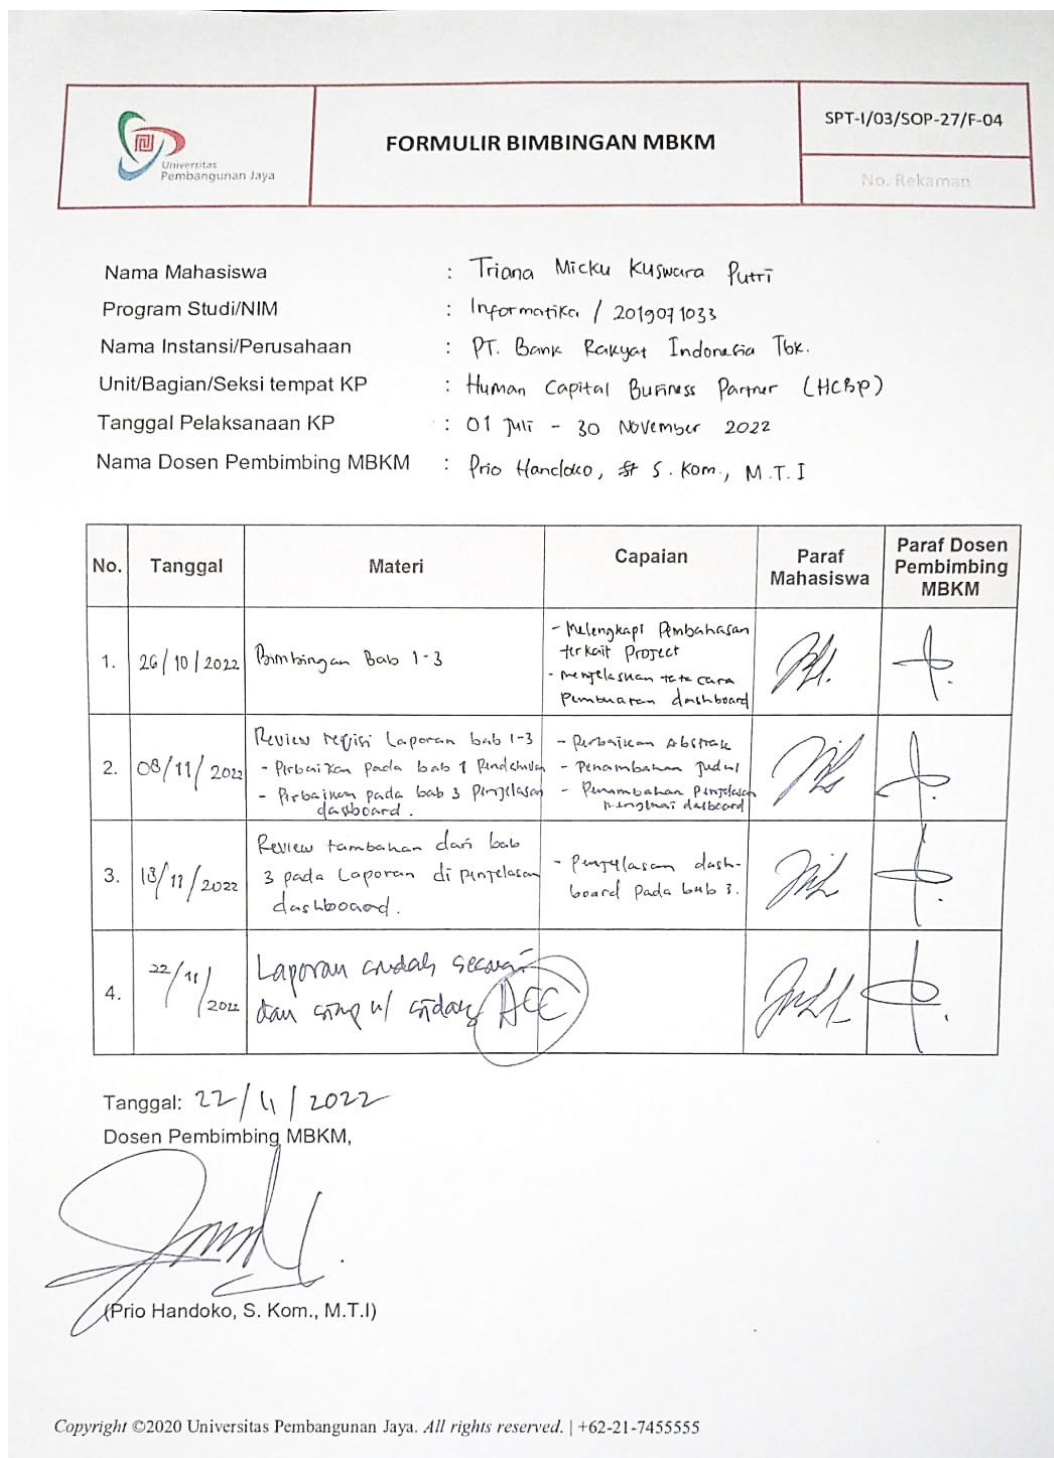 Universitas
Pembangunan Jaya
FORMULIR BIMBINGAN MBKM
SPT-I/03/SOP-27/F-04
No. Rekaman
Nama Mahasiswa : Triana Micku Kuswara Putri
Program Studi/NIM : Informatika / 2019071033
Nama Instansi/Perusahaan : PT. Bank Rakyat Indonesia Tbk.
Unit/Bagian/Seksi tempat KP : Human Capital Business Partner (HCBP)
Tanggal Pelaksanaan KP : 01 Juli - 30 November 2022
Nama Dosen Pembimbing MBKM : Prio Handoko, S. Kom., M.T.I
No. Tanggal Materi Capaian Paraf Mahasiswa Paraf Dosen Pembimbing MBKM
1. 26/10/2022 Bimbingan Bab 1-3
- Melengkapi Pembahasan
terkait Project
- menjelaskan tata cara
Pembuatan dashboard
2. 08/11/2022
Review revisi Laporan bab 1-3
- Perbaikan pada bab 1 Pendahuluan
- Perbaikan pada bab 3 Penjelasan
dasboard.
- Perbaikan Abstrak
- Penambahan Judul
- Penambahan Penjelasan
mengenai dasboard
3. 18/11/2022
Review tambahan dari bab
3 pada Laporan di penjelasan
dashboard.
- Penjelasan dash-
board pada bab 3.
4. 22/11/2022
Laporan sudah sesuai
dan siap u/ sidang ACC
Tanggal: 22/11/2022
Dosen Pembimbing MBKM,
(Prio Handoko, S. Kom., M.T.I)
Copyright ©2020 Universitas Pembangunan Jaya. All rights reserved. | +62-21-7455555